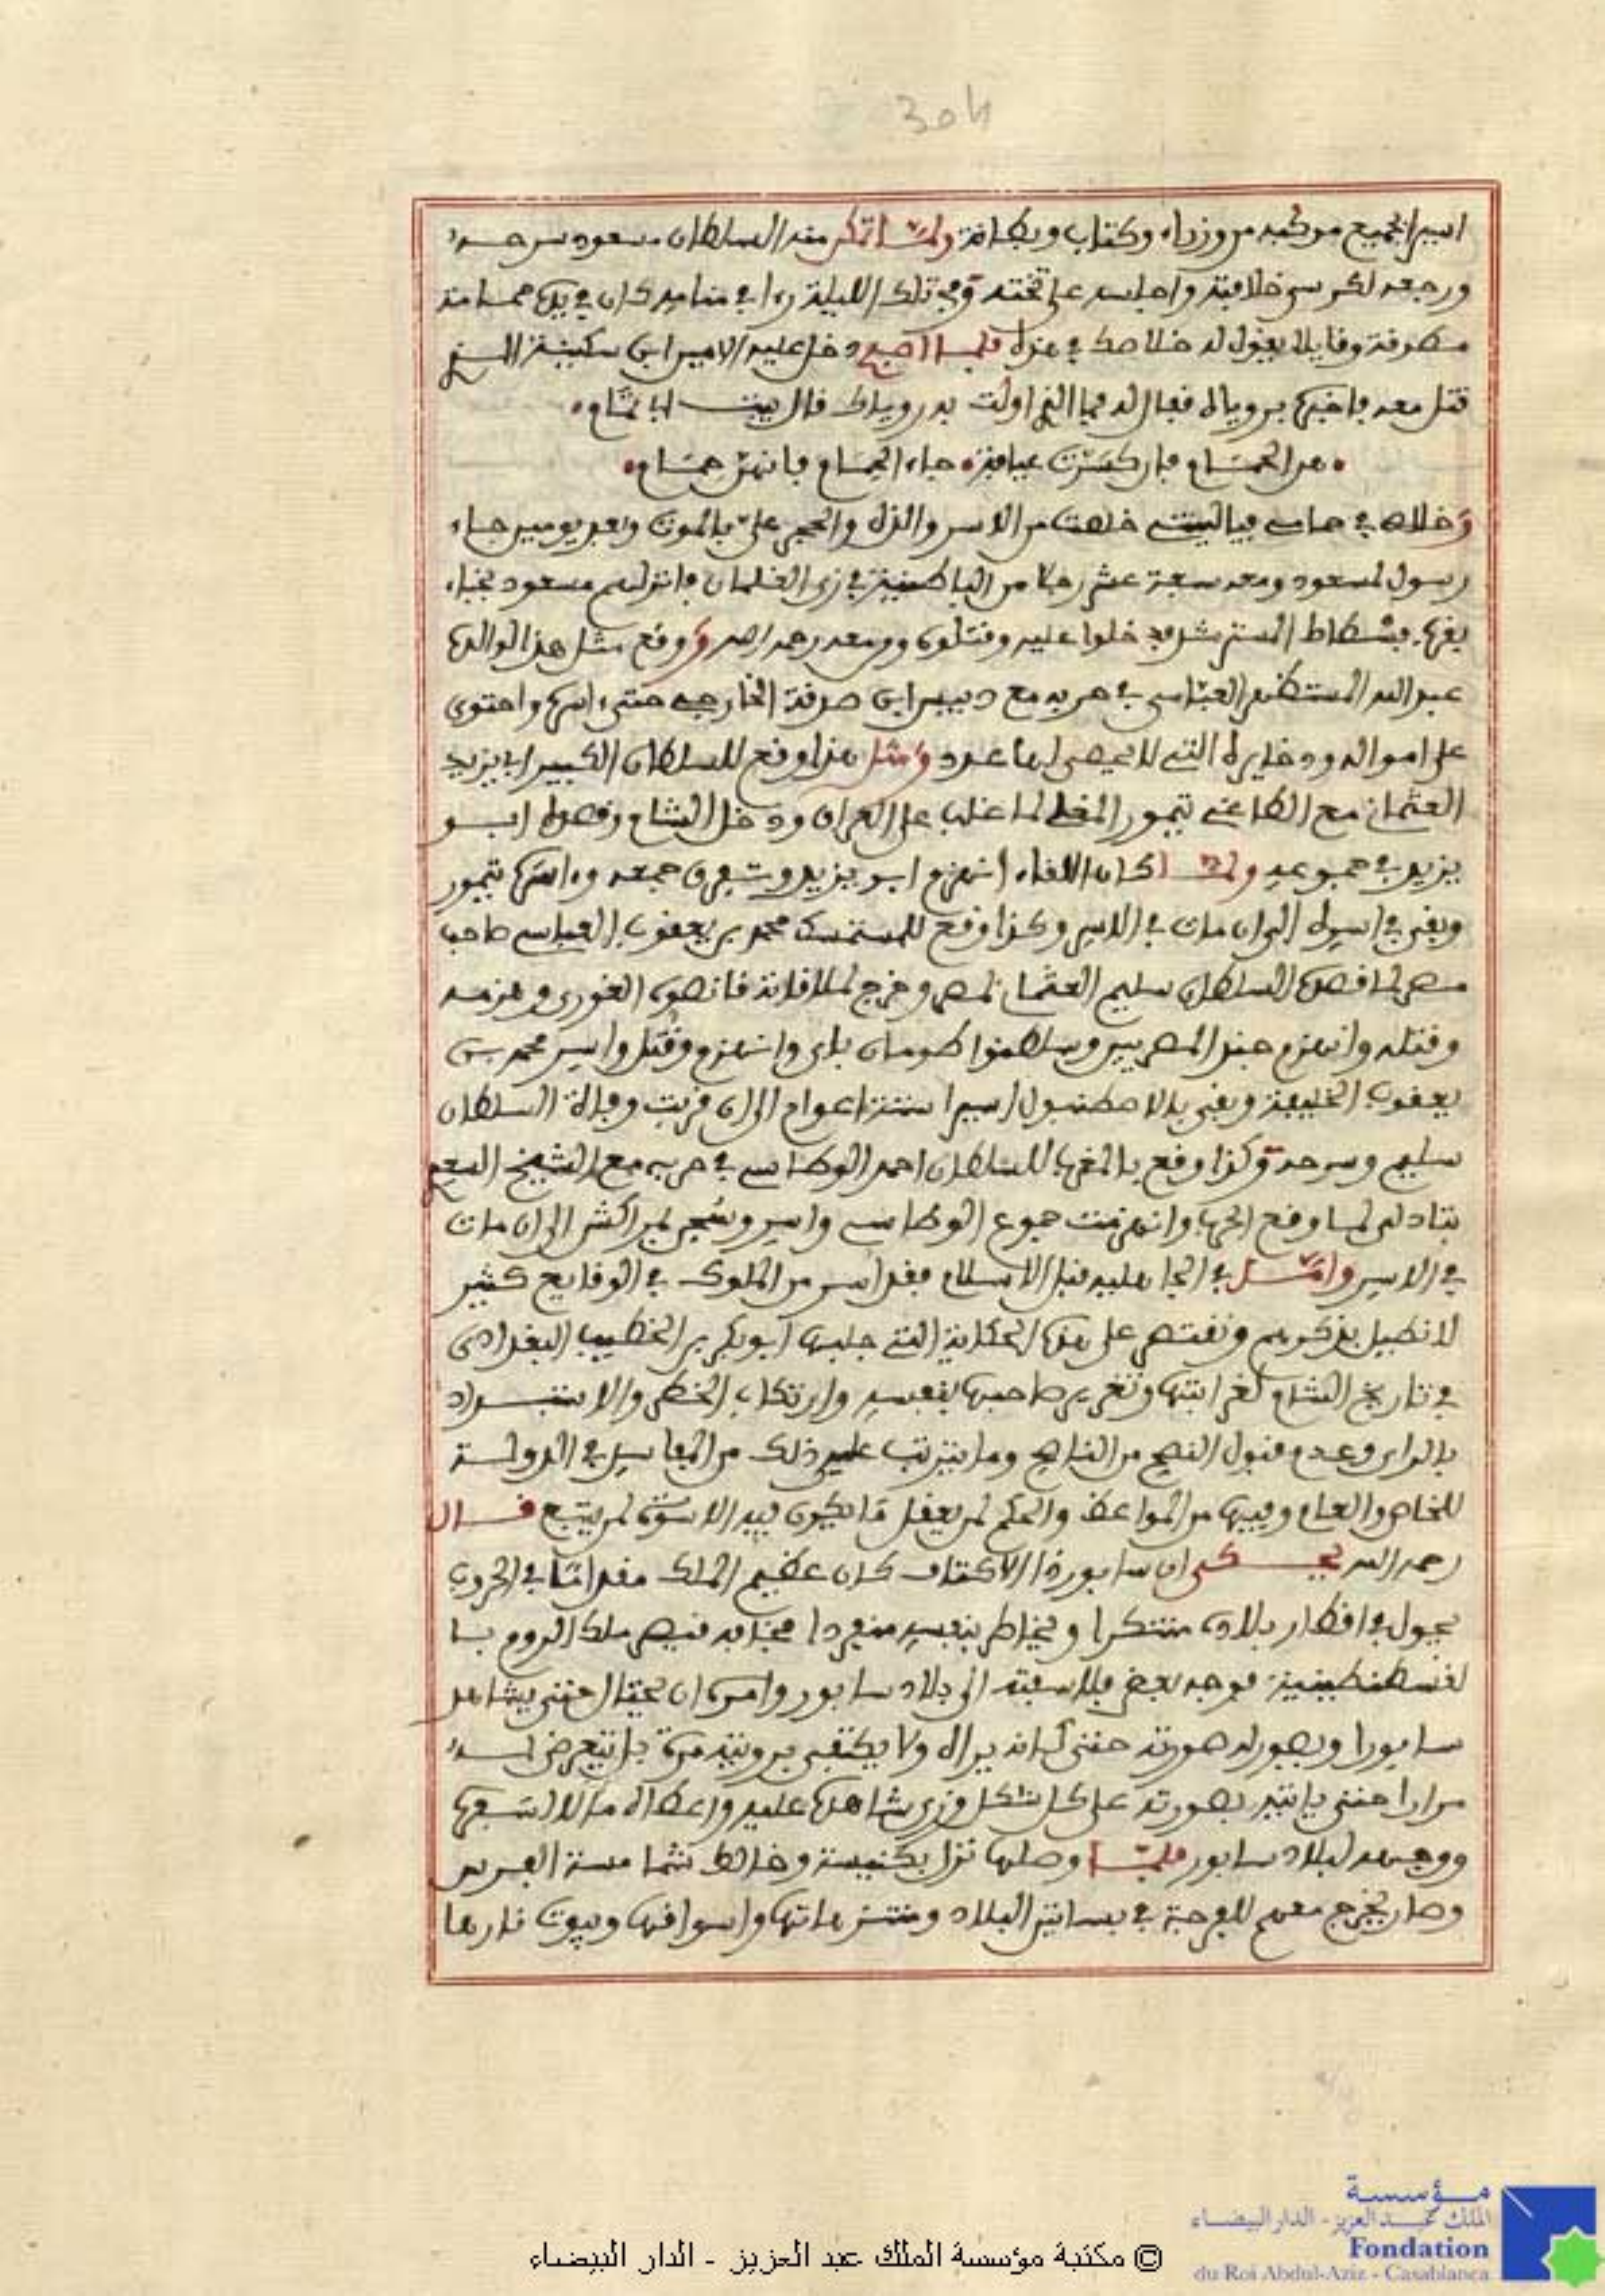 304
اسير الجميع موكبه من وزراء وكتاب وبطانة ولما تمكن منه السلطان مسعود سرحه
ورجعه لكرسي خلافته واجلسه على تخته وفي تلك الليلة رءا في منامه كان في يده حمامة
مطوفة وقايلا يقول له خلاصك في هذه فلما اصبح دخل عليه الامير ابن سكينة الذي
قتل معه فاخبره برؤياه فقال له فما الذي اولت به رؤياك قال ببيت ابي تمام
هن الحمام فان كسرت عيافة جاء الحمام فانهن حمام
وخلاصه في حمامي فياليتني خلصت من الاسر والذل والحجر علي بالموت وبعد يومين جاء
رسول لمسعود ومعه سبعة عشر رجلا من الباطنية في زي الغلمان فانزلهم مسعود بخباء
بقرب فسطاط المسترشد فدخلوا عليه وقتلوه ومن معه رحمه الله ووقع مثل هذا لوالده
عبد الله المستظهر العباسي في حربه مع دبيس ابن صدقة الخارجي حتى اسره واحتوى
على امواله وذخايره التي لا يحصى لها عدد ومثل هذا وقع للسلطان الكبير ابي يزيد
العثماني مع الطاغي تيمور المغلي لما غلب على العراق ودخل الشام وقصده ابو
يزيد في جموعه ولما كان اللقاء انهزم ابو يزيد وتفرق جمعه واسره تيمور
وبقي في اسره الى ان مات في الاسر وكذا وقع للمستمسك محمد بن يعقوب العباسي صاحب
مصر لما قصده السلطان سليم العثماني لمصر وخرج لملاقاته قانصوه الغوري وهزمه
وقتله وانهزم جند المصريين وسلطنوا طومان باي وانهزم وقتل واسر محمد بن
يعقوب الخليفة وبقي بالاصطنبول اسيرا ستة اعوام الى ان قربت وفاة السلطان
سليم وسرحه وكذا وقع بالمغرب للسلطان احمد الوطاسي في حربه مع الشيخ السعدي
بتادلى لما وقع الحرب وانهزمت جموع الوطاسي واسر وسجن بمراكش الى ان مات
في الاسر وامثل في الجاهلية قبل الاسلام فقد اسر من الملوك في الوقايع كثير
لا نطيل بذكرهم ونقتصر على هذه الحكاية التي جلبها ابو بكر بن الخطيب البغدادي
في تاريخ الشام لغرابتها وتغرير صاحبها بنفسه وارتكاب الخطر والاستبداد
بالراي وعدم قبول النصح من الناصح وما يترتب على ذلك من المفاسد في الدولة
للخاص والعام وفيها من المواعظ والحكم لمن يعقل ما يكون فيه الاسوة لمن يتبع قال
رحمه الله يحكى ان سابور ذا الاكتاف كان عظيم الملك مقداما في الحروب
يجول في اقطار بلاده متنكرا ويخاطر بنفسه منفردا فخافه قيصر ملك الروم با
لقسطنطينية فوجه بعض فلاسفته الى بلاد سابور وامره ان يحتال حتى يشاهد
سابورا ويصور له صورته حتى كانه يراه ولا يكتفي برؤيته مرة بل يتعرض له
مرارا حتى ياتيه بصورته على كل شكل وزي شاهده عليه واعطاه مالا لسفره
ووجهه لبلاد سابور فلما وصلها نزل بكنيسة وخالط شمامسة الفرس
وصار يخرج معهم للفرجة في بساتين البلاد ومنتزهاتها واسواقها وبيوت نارها
© مكتبة مؤسسة الملك عبد العزيز - الدار البيضاء
مؤسسة
الملك عبد العزيز - الدار البيضاء
Fondation
du Roi Abdul-Aziz - Casablanca